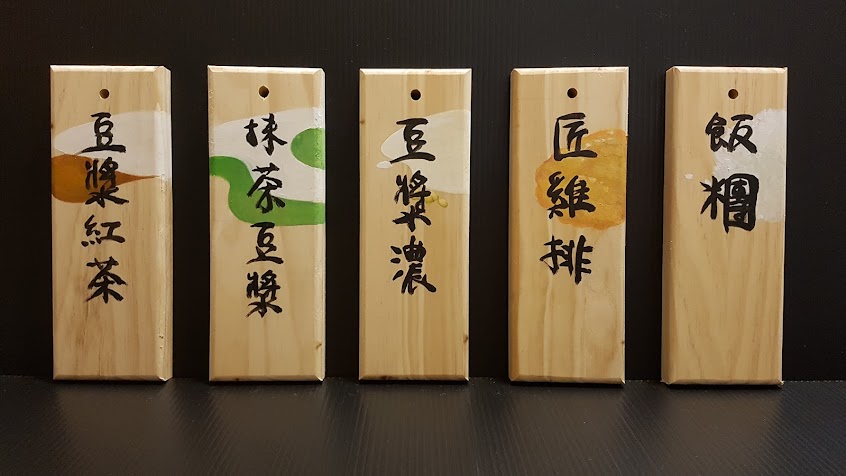 豆漿紅茶
抹茶豆漿
豆漿濃
匠雞排
飯糰